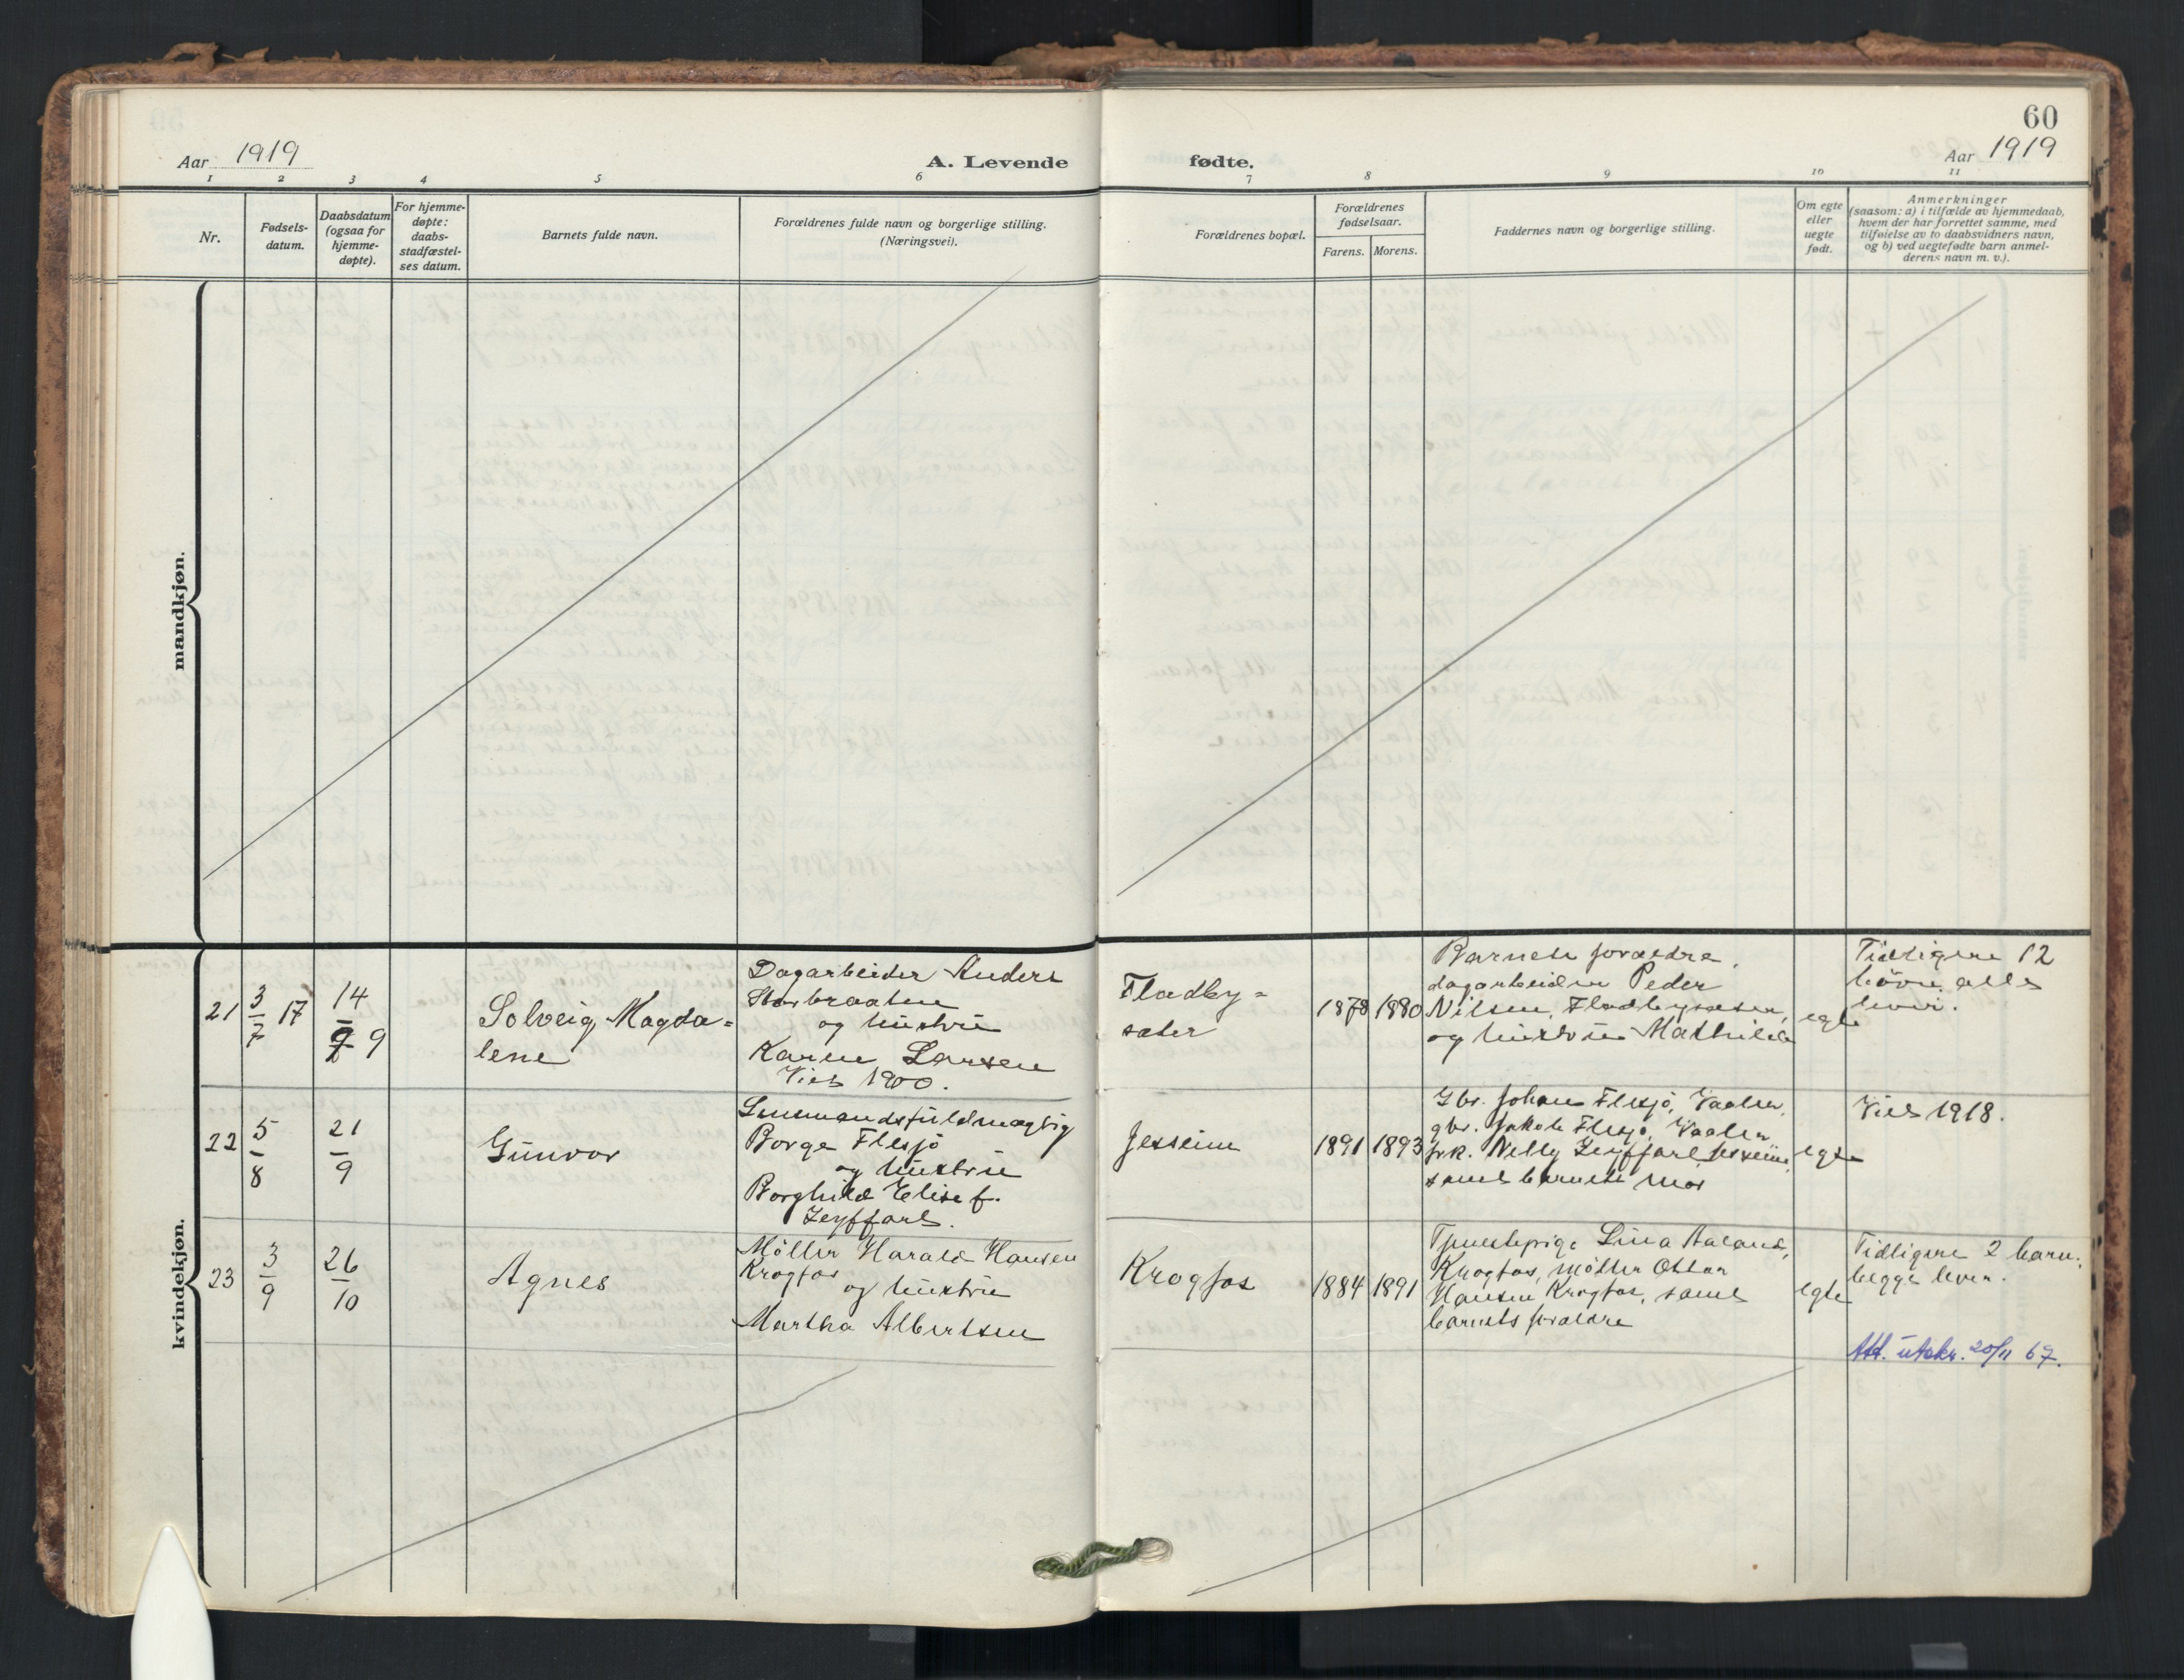 60
Aar 1919
A. Levende
fødte.
Aar 1919
1 2 3 4 5 6 7 8 9 10 11
Nr.
Fødsels-
datum.
Daabsdatum
(ogsaa for
hjemme-
døpte).
For hjemme-
døpte:
daabs-
stadfæstel-
ses datum.
Barnets fulde navn.
Forældrenes fulde navn og borgerlige stilling.
(Næringsvei).
Forældrenes bopæl.
Forældrenes
fødselsaar.
Farens. Morens.
Faddernes navn og borgerlige stilling.
Om egte
eller
uegte
født.
Anmerkninger
(saasom: a) i tilfælde av hjemmedaab,
hvem der har forrettet samme, med
tilføielse av to daabsvidners navn,
og b) ved uegtefødte barn anmel-
derens navn m. v.).
mandkjøn.
kvindekjøn.
21
3/7 17
14/9 9
Solveig Magda=
lene
Dagarbeider Anders
og hustru
Karen Larsen
Viet 1900.
Fladby=
sæter
1878 1880
Barnets forældre,
dagarbeider Peder
Nilsen, Fladbysæter,
og hustru Mathilde
egte
Tidligere 12
børn, alle
lever.
22
5/8
21/9
Gunvor
Lensmandsfuldmægtig
Borge Flesjø
og hustru
Borghild Elise f.
Zeyffart.
Jesseim
1891 1893
Gbr. Johan Flesjø, Vaaler,
gbr. Jakob Flesjø, Vaaler,
frk. Nelly Zeyffart Jesseim,
samt barnets mor
egte
Viet 1918.
23
3/9
26/10
Agnes
Møller Harald Hansen
Krogfos
og hustru
Martha Albertsen
Krogfos
1884 1891
Tjenestepige Lina Aaland,
Krogfos, møller Ottar
Hansen Krogfos, samt
barnets forældre
egte
Tidligere 2 barn,
begge lever.
Att. utskr. 20/11 67.